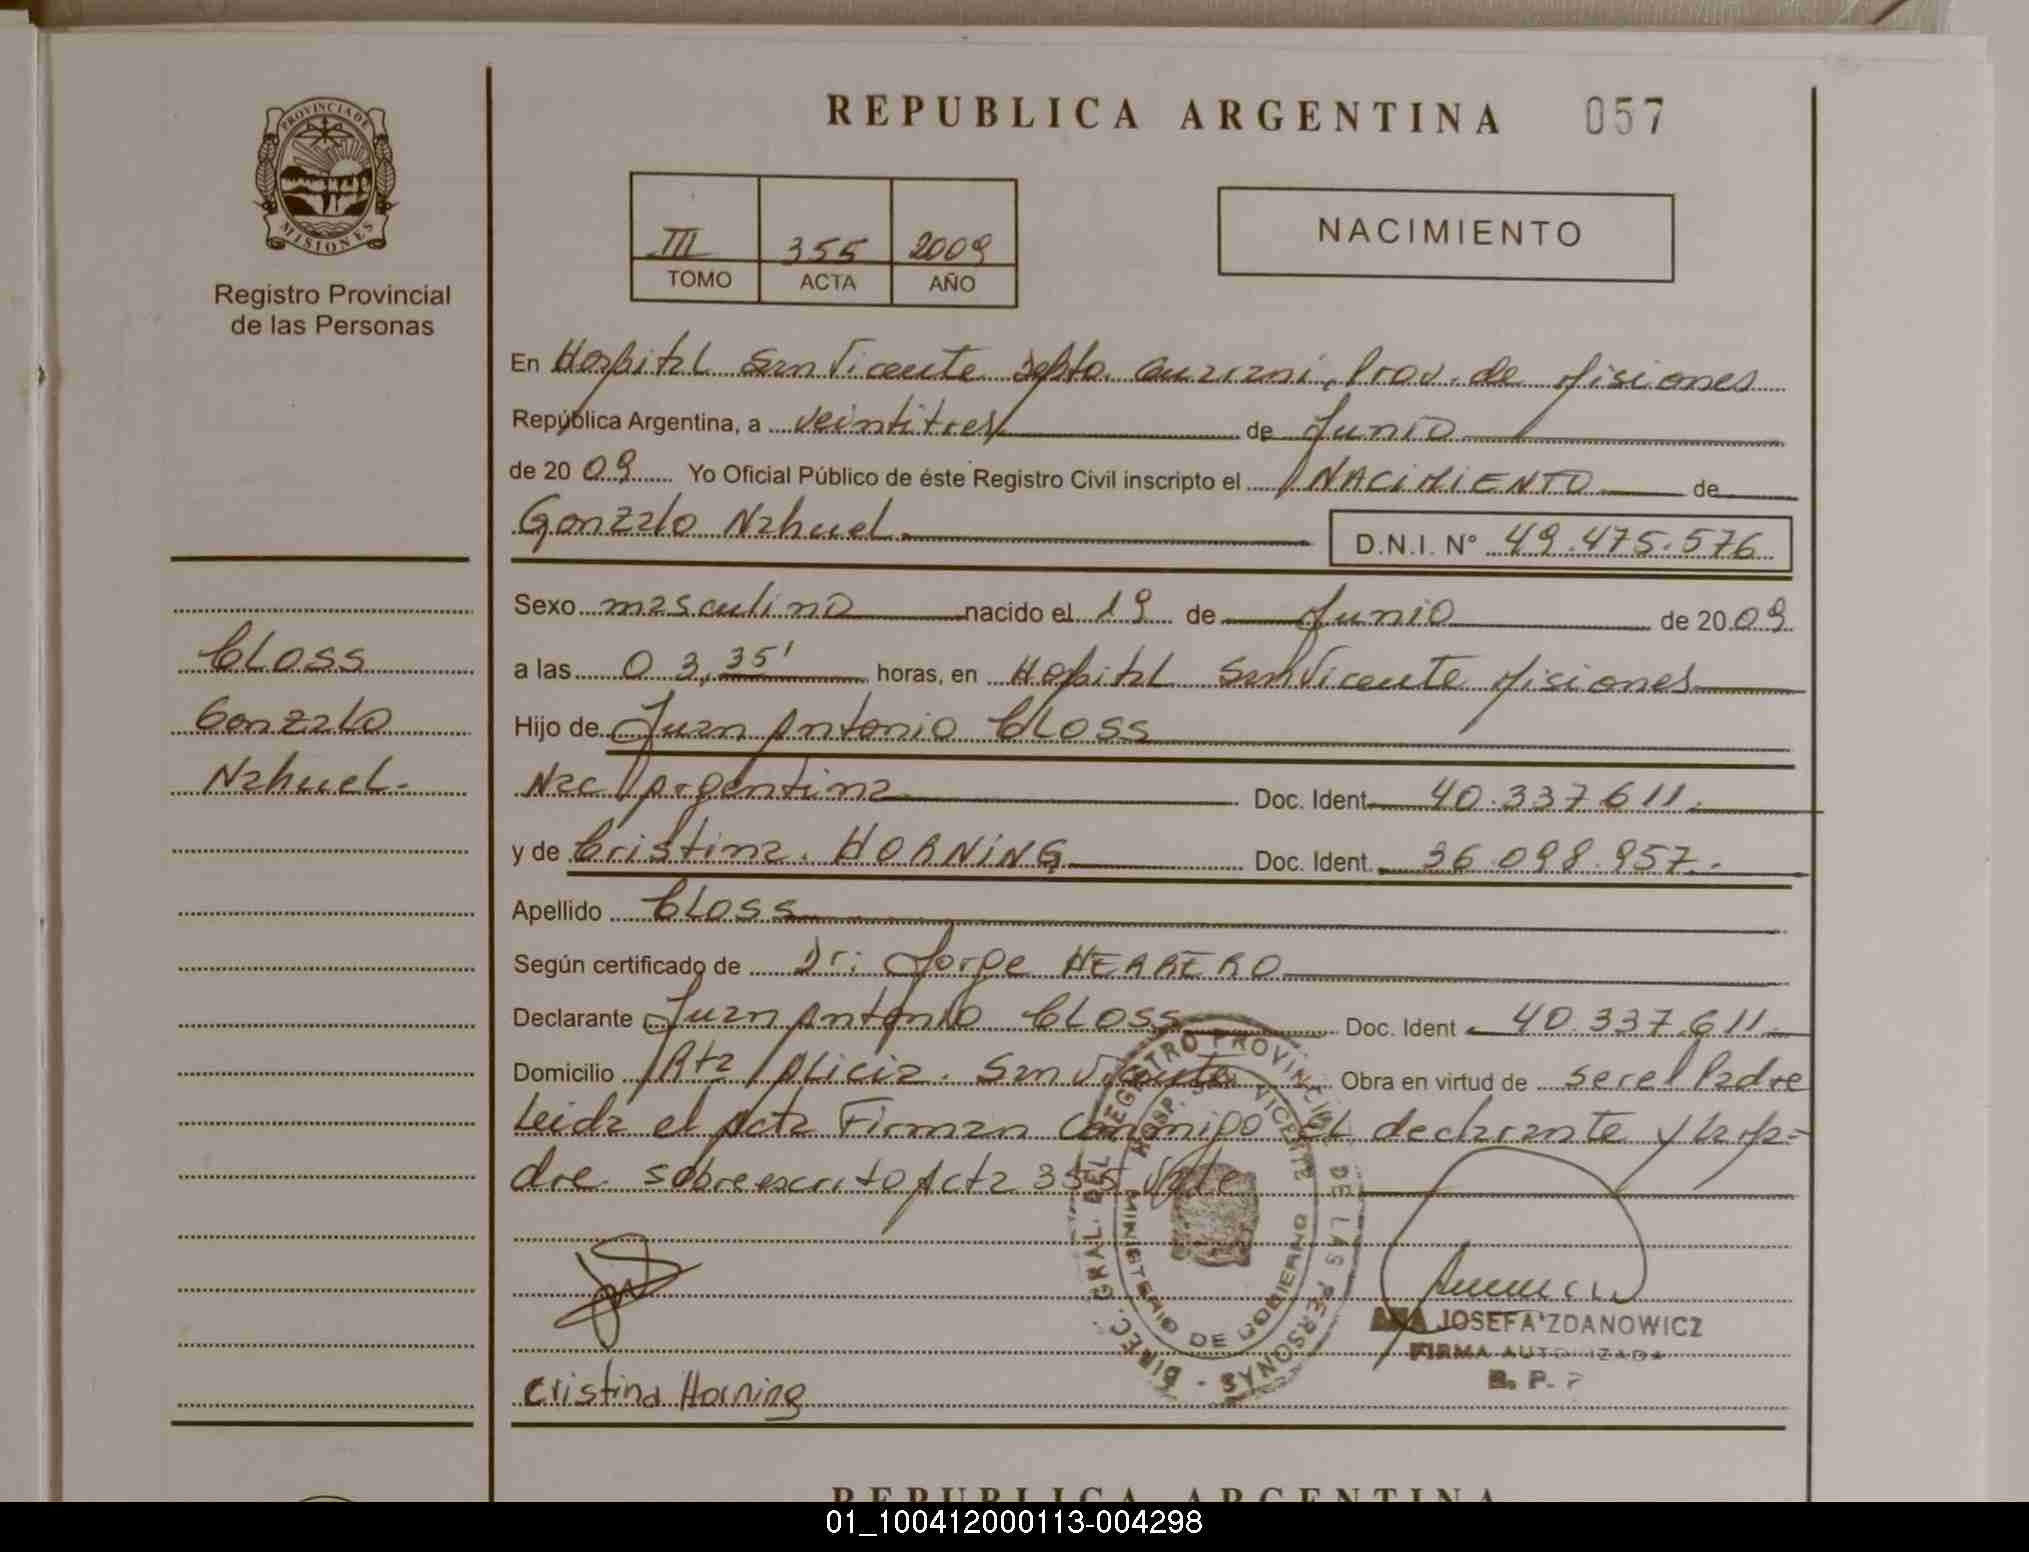 REPUBLICA ARGENTINA 057
PROVINCIA DE
MISIONES
Registro Provincial
de las Personas
III 355 2009
TOMO ACTA AÑO
NACIMIENTO
En Hospital San Vicente Dpto. Guarani, Prov. de Misiones
República Argentina, a veintitres de Junio
de 2009 Yo Oficial Público de éste Registro Civil inscripto el NACIMIENTO de
Gonzalo Nahuel. D.N.I. N° 49.475.576
Sexo masculino nacido el 19 de Junio de 2009
a las 03,35' horas, en Hospital San Vicente Misiones
Hijo de Juan Antonio CLOSS
Nac Argentina Doc. Ident. 40.337.611.
y de Cristina. HORNING Doc. Ident. 36.098.957.-
Apellido CLOSS
Según certificado de Dr: Jorge HERRERO
Declarante Juan Antonio CLOSS Doc. Ident 40.337.611
Domicilio Alicia. San Vicente Obra en virtud de ser el Padre
Leida el Acta Firman conmigo el declarante y la ma-
dre. sobreescrito Acta 355 Vale
CLOSS
Gonzalo
Nahuel.-
DIREC. GRAL. DEL REGISTRO PROVINCIAL DE LAS PERSONAS -
HOSP. SAN VICENTE
MINISTERIO DE GOBIERNO
ANA JOSEFA ZDANOWICZ
FIRMA AUTORIZADA
R. P. P
Cristina Horning
REPUBLICA ARGENTINA
01_100412000113-004298